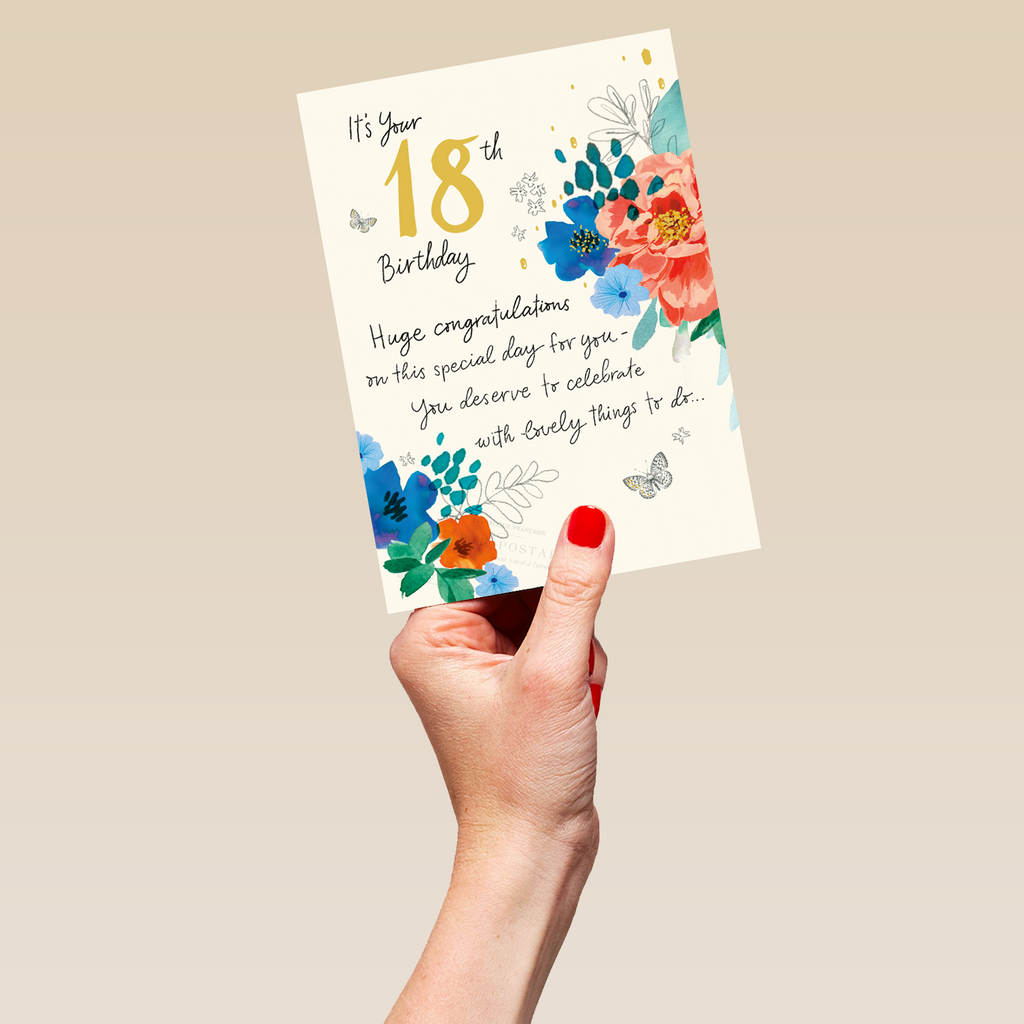 It's Your
18th
Birthday
Huge congratulations
on this special day for you -
You deserve to celebrate
with lovely things to do...
POSTA